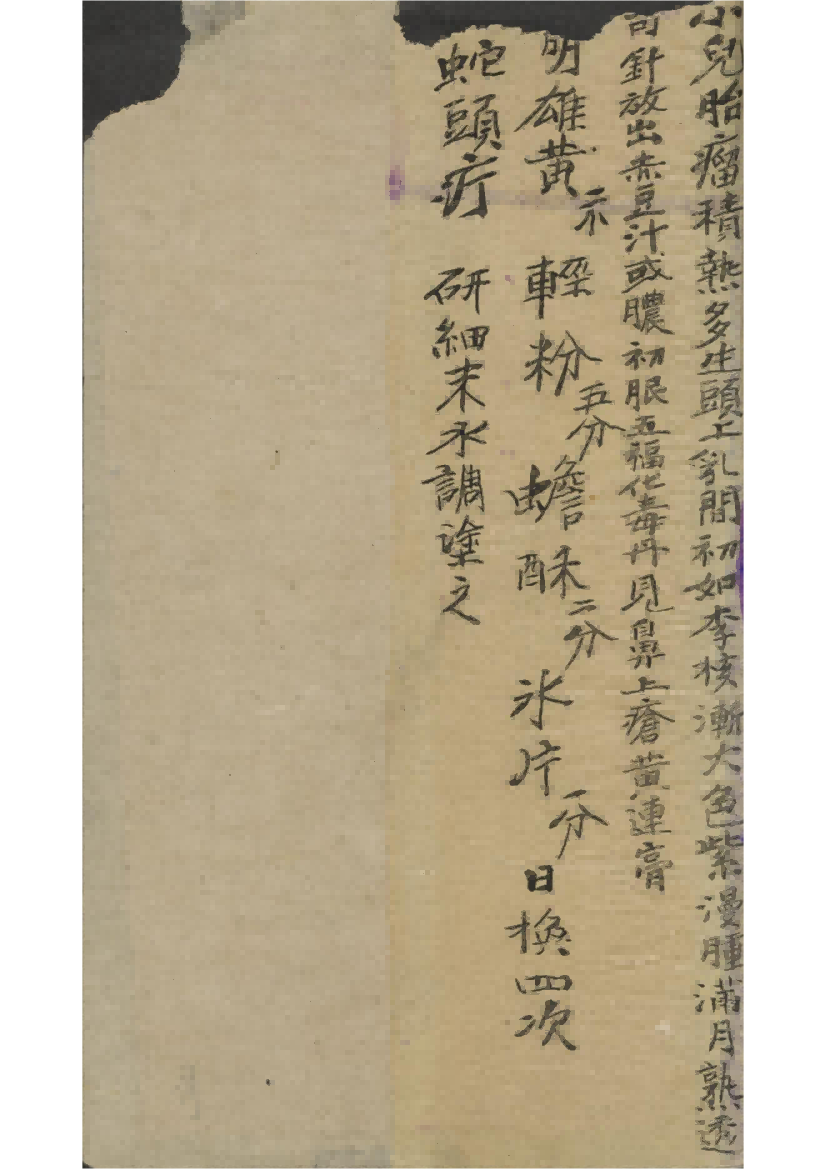 小兒胎瘤積熱多生頭上乳間初如李核漸大色紫漫腫滿月熟透
可針放出赤豆汁或膿初服五福化毒丹見鼻上瘡黃連膏
明雄黃 輕粉五分 蟾酥二分 氷片一分 日換四次
蛇頭疔 研細末水調塗之